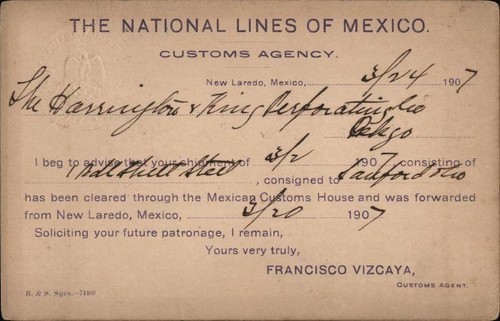 THE NATIONAL LINES OF MEXICO.
CUSTOMS AGENCY.
New Laredo, Mexico, 3/24 1907
The Harrington & King Perforating Co
Chgo
I beg to advise that your shipment of 3/2 1907, consisting of
Steel, consigned to Sanford & Co
has been cleared through the Mexican Customs House and was forwarded
from New Laredo, Mexico, 3/20 1907
Soliciting your future patronage, I remain,
Yours very truly,
FRANCISCO VIZCAYA,
CUSTOMS AGENT.
R. & S. Syes.